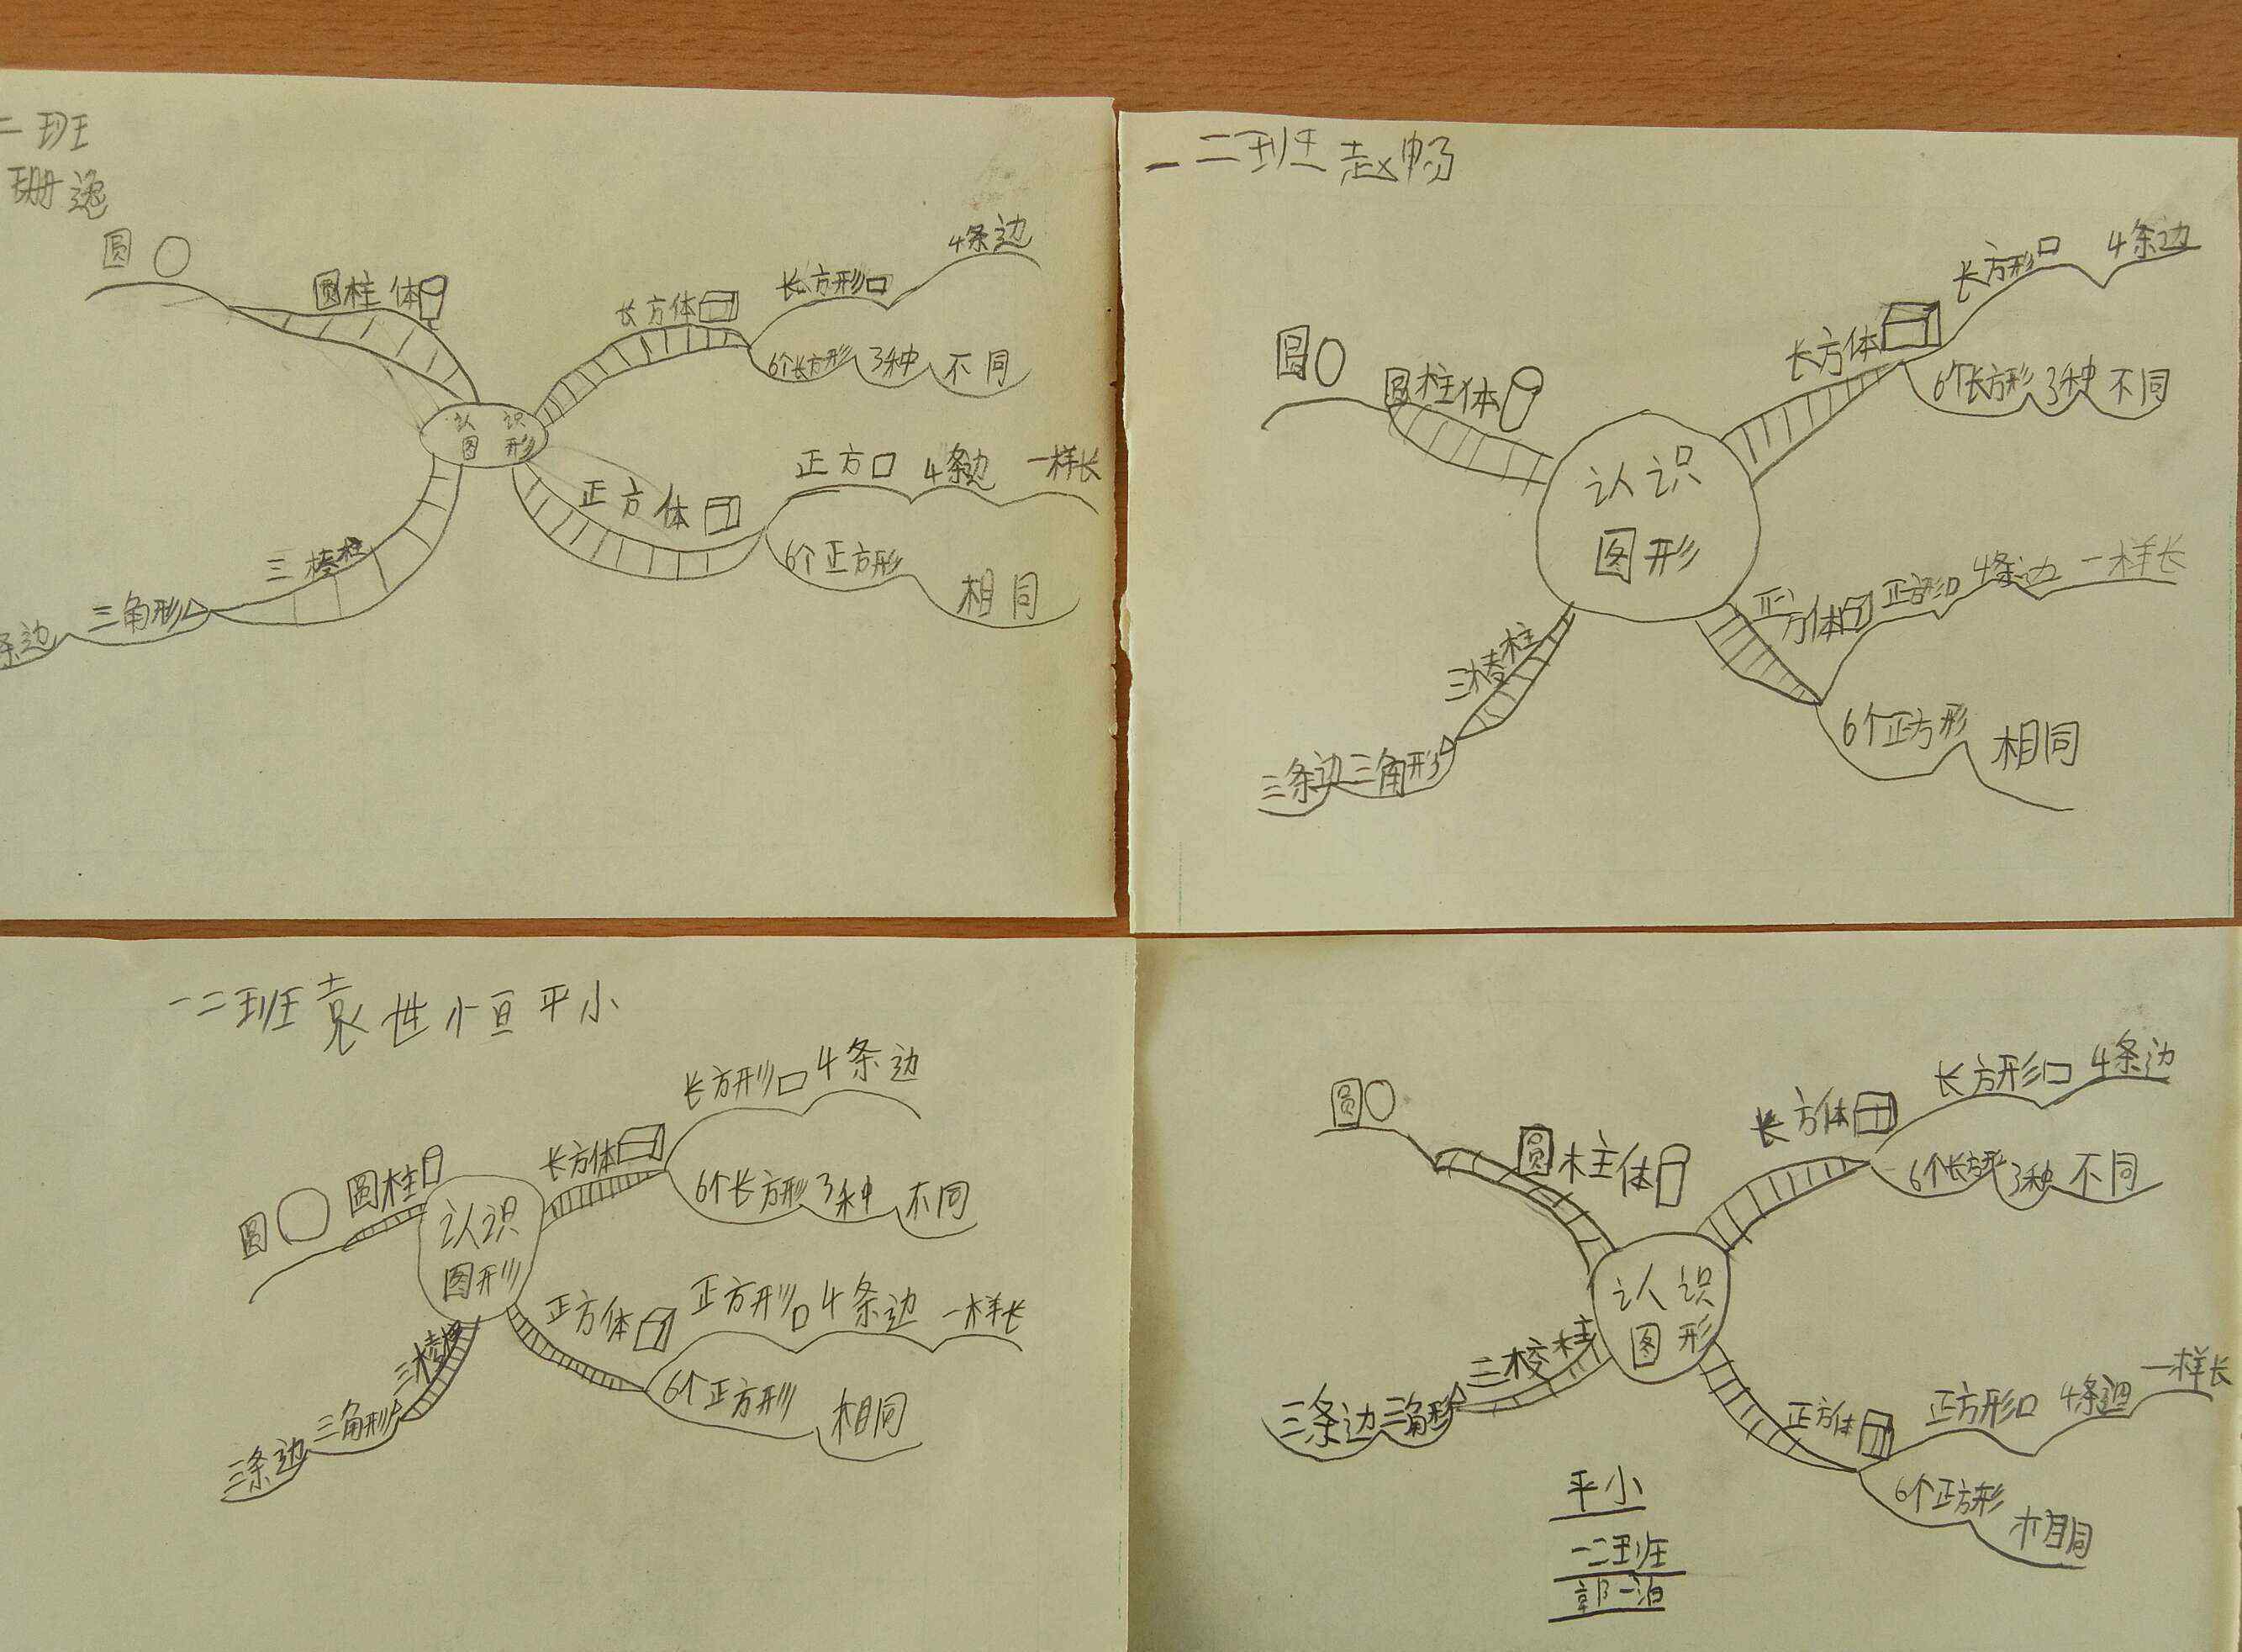 二班
珊逸
圆
圆柱体
长方体
长方形
4条边
6个长方形 3种 不同
认识
图形
正方体
正方
4条边
一样长
6个正方形
相同
三棱柱
三角形
条边
一二班赵畅
圆
圆柱体
长方体
长方形
4条边
6个长方形 3种 不同
认识
图形
正方体
正方形
4条边
一样长
6个正方形
相同
三棱柱
三条边 三角形
一二班袁世恒平小
圆
圆柱
长方体
长方形
4条边
6个长方形 3种 不同
认识
图形
正方体
正方形
4条边
一样长
6个正方形
相同
三棱
三角形
三条边
圆
圆柱体
长方体
长方形
4条边
6个长方形 3种 不同
认识
图形
三棱柱
三条边 三角形
正方体
正方形
4条边
一样长
6个正方形
相同
平小
一二班
郭一泊